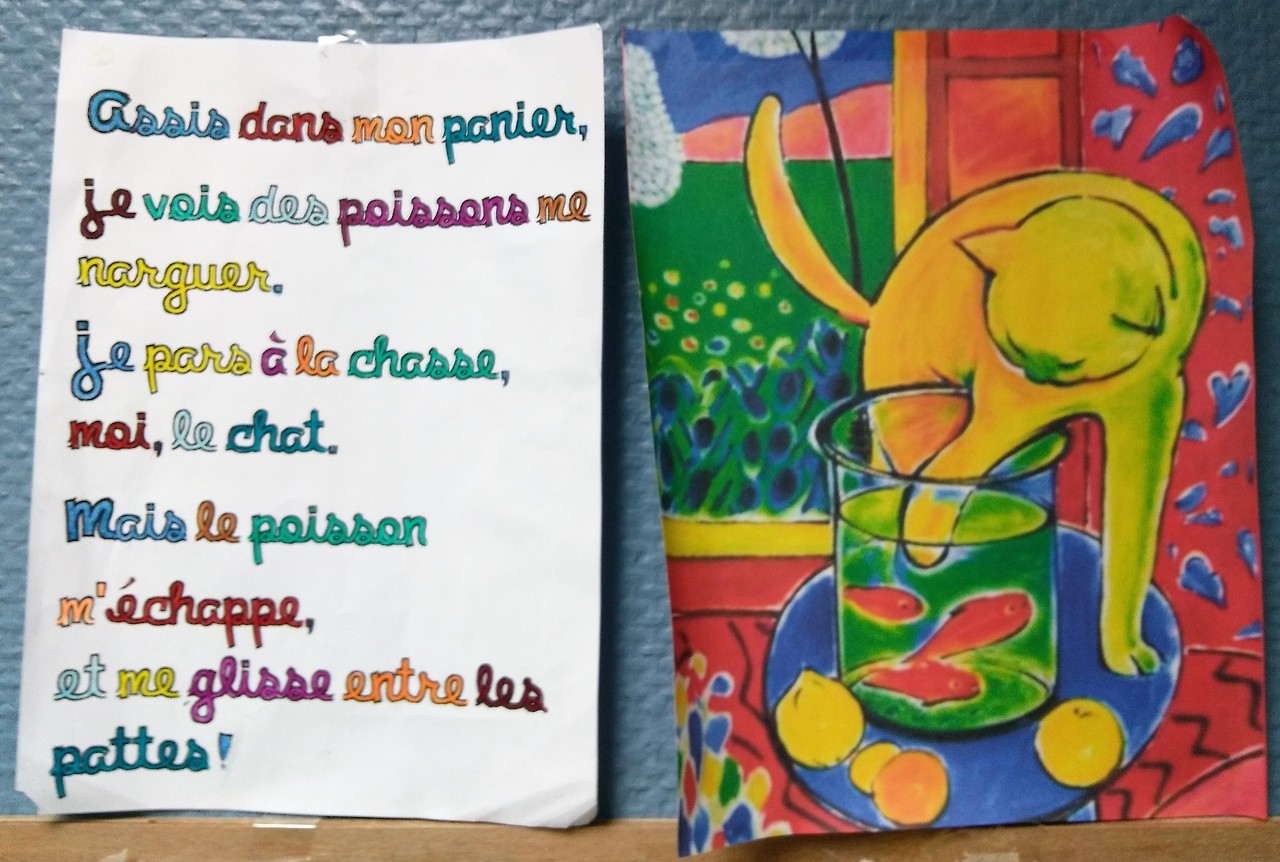 Assis dans mon panier,
je vois des poissons me
narguer.
Je pars à la chasse,
moi, le chat.
Mais le poisson
m'échappe,
et me glisse entre les
pattes !